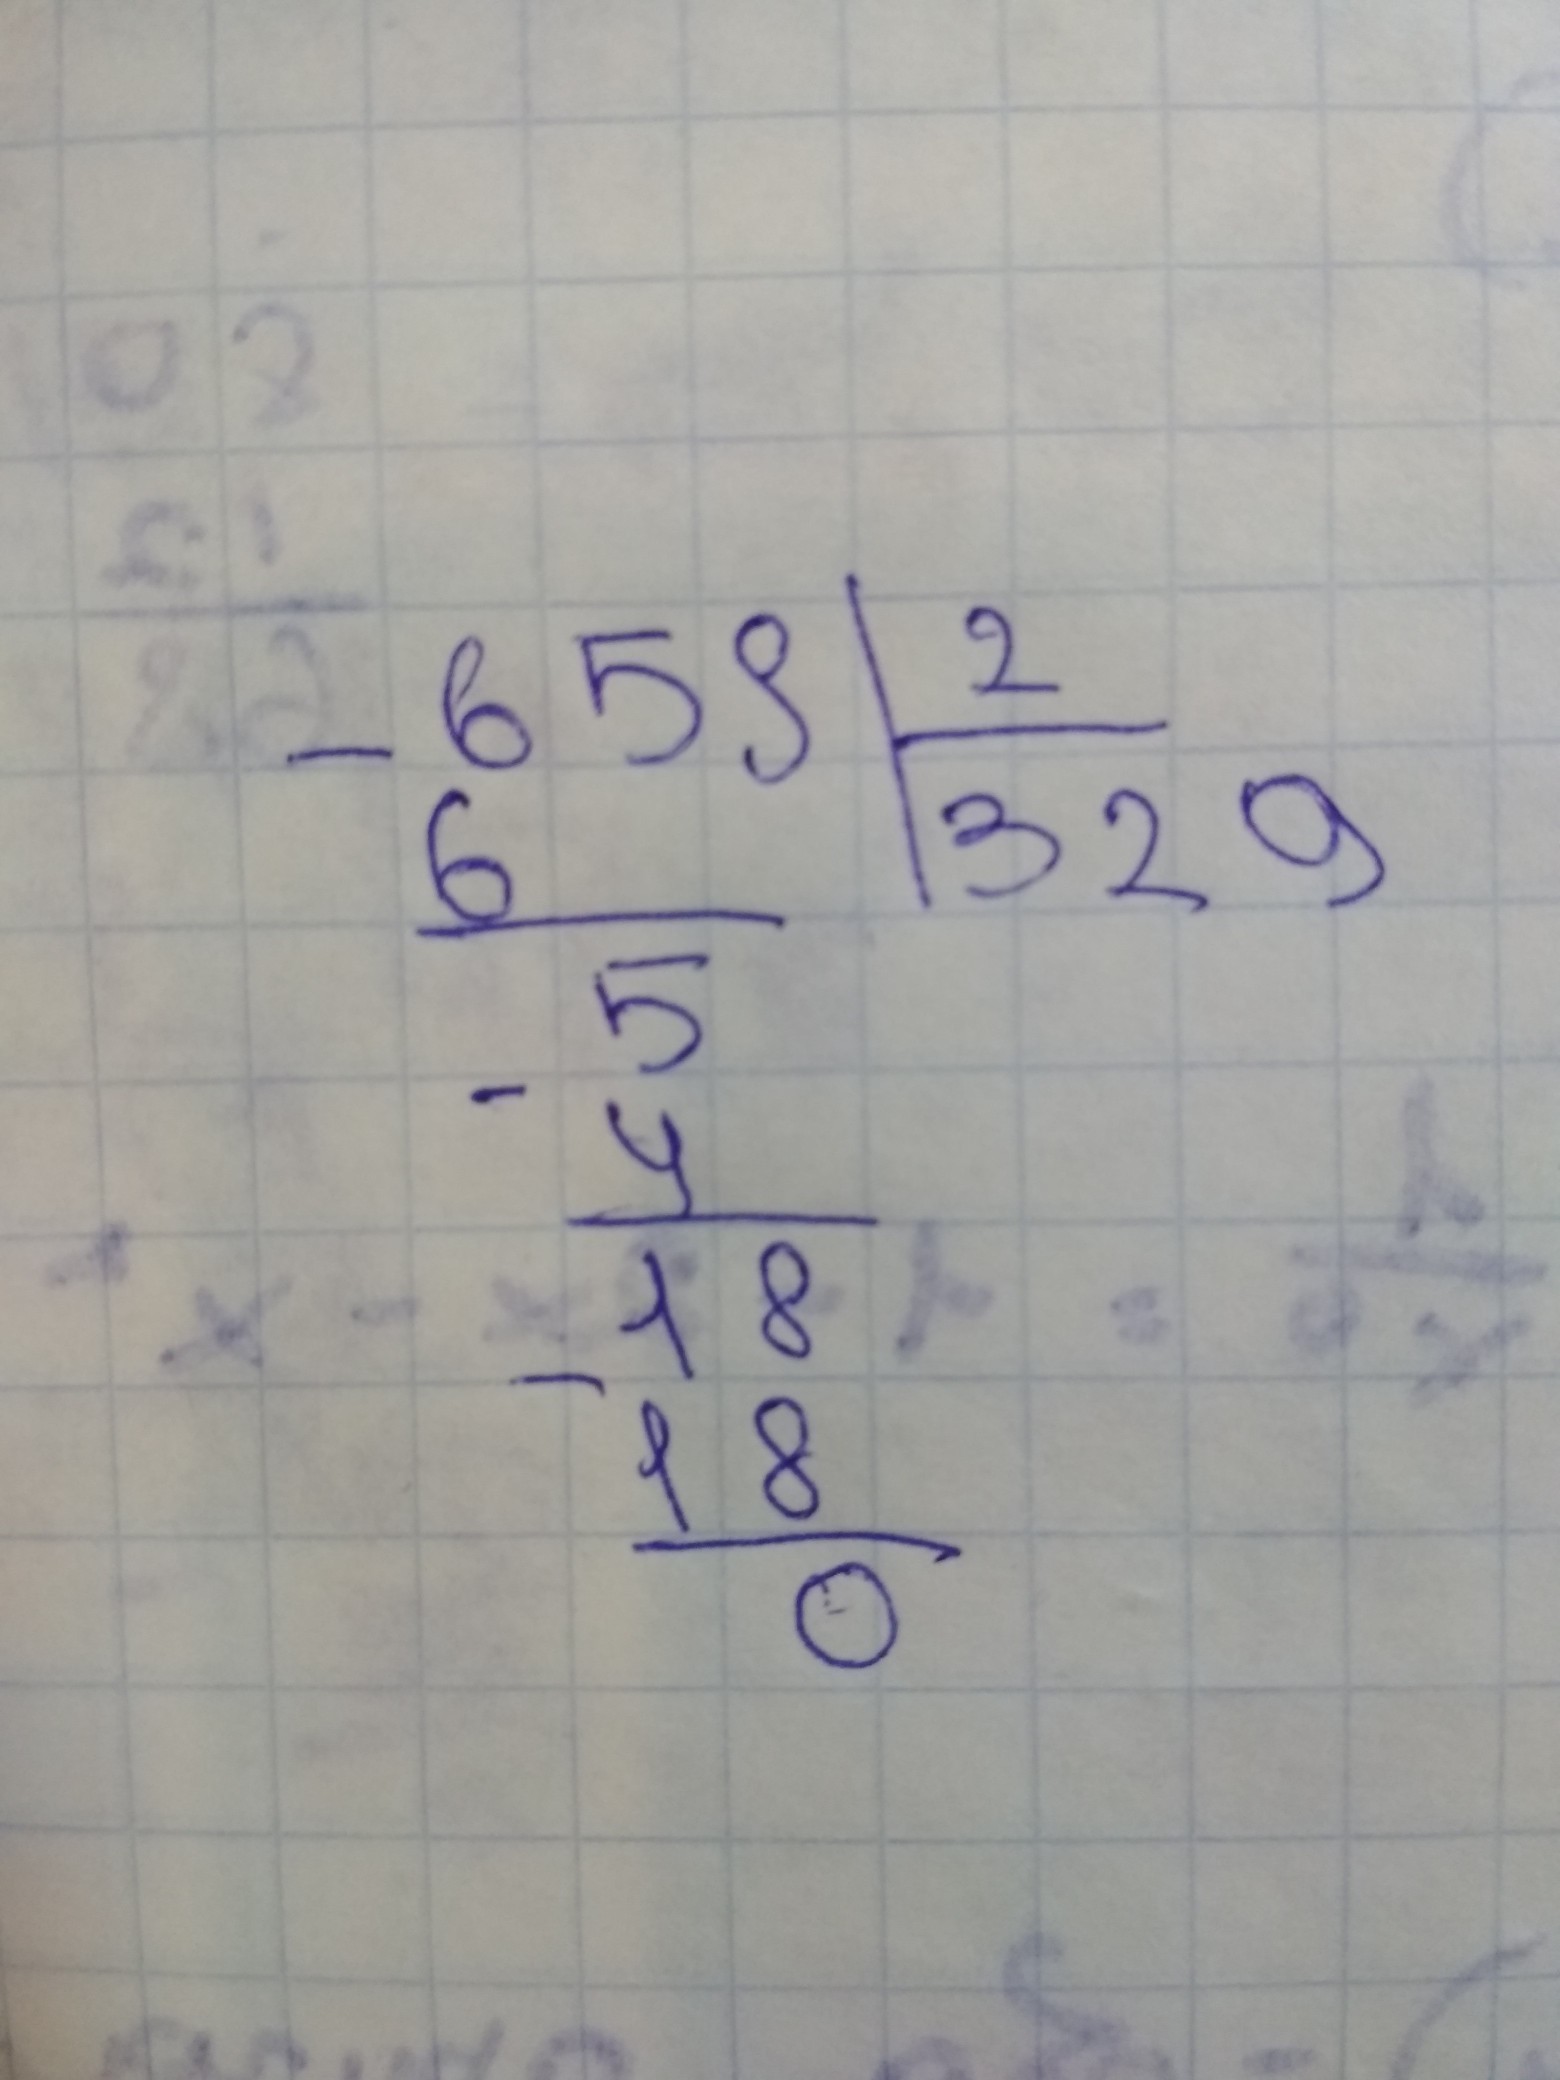 - 659 | 2
6 329
- 5
4
- 18
18
0